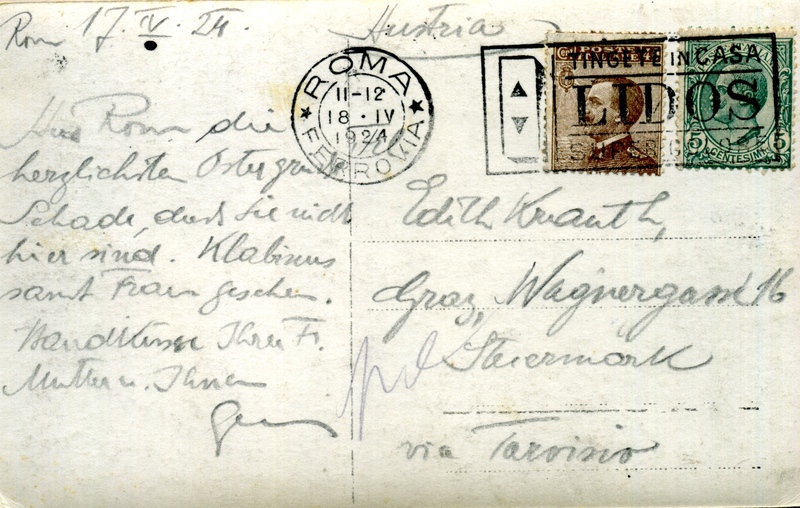 Rom 17. IV. 24.
Austria
ROMA
11-12
18 · IV
1924
FERROVIA
TINGETE IN CASA
LIDOS
POSTE
CENTESIMI
5 5
Aus Rom die
herzlichsten Ostergrüße
Schade, dass Sie nicht
hier sind. Klabunds
samt Frau gesehen.
Handküsse Ihrer Fr.
Mutter u. Ihnen
Edith Knauth,
Graz, Wagnergasse 16
Steiermark
via Tarvisio